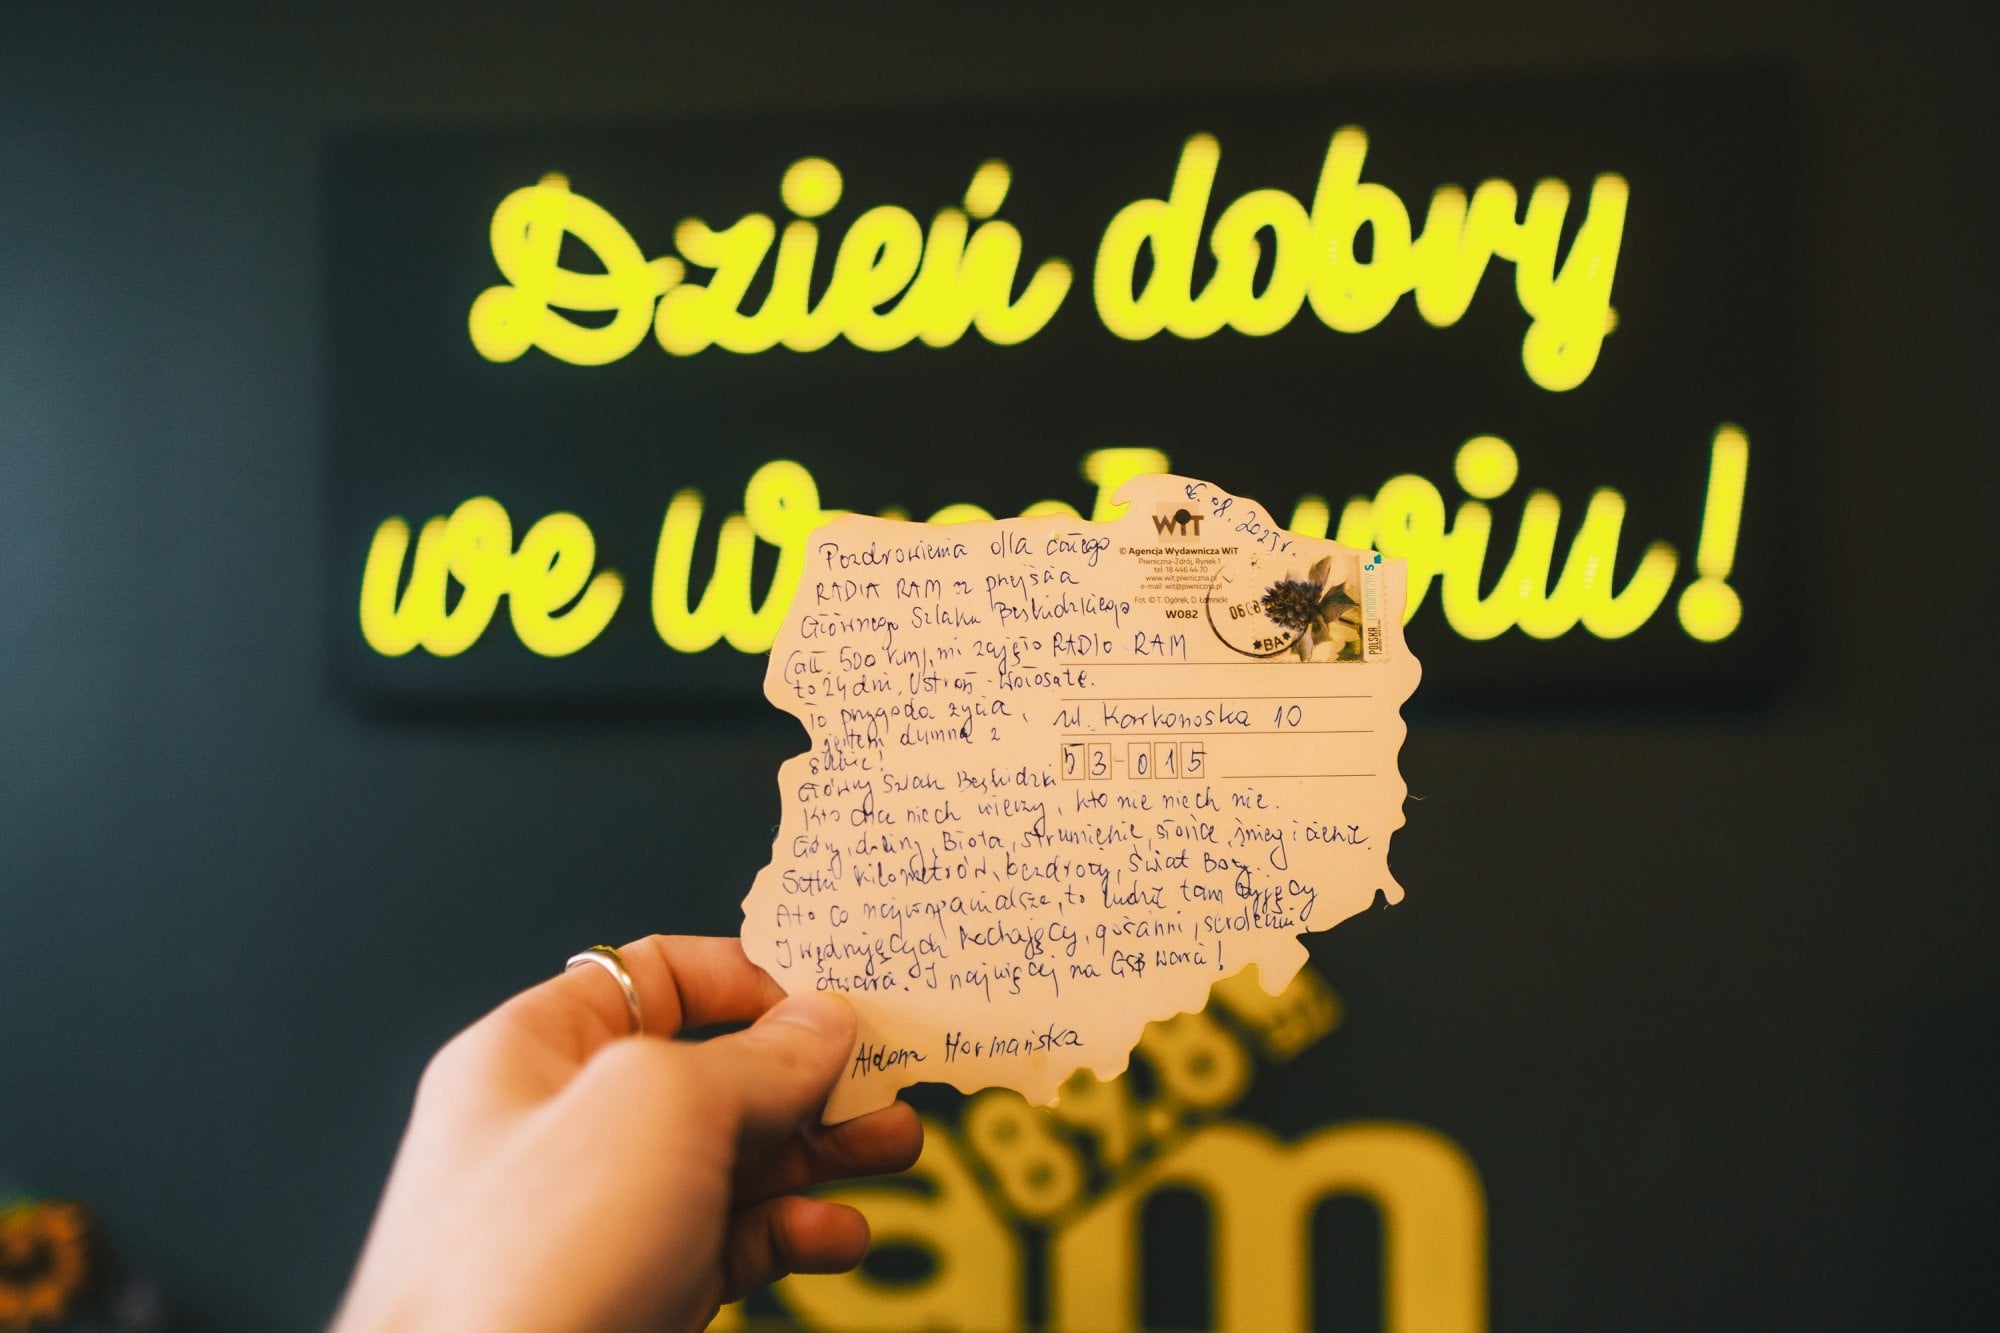 Dzień dobry
we Wrocławiu!
6.08.2025r.
WiT
© Agencja Wydawnicza WiT
Piwniczna-Zdrój, Rynek 1
tel. 18 446 44 70
www.wit.piwniczna.pl
e-mail: wit@piwniczna.pl
Fot. © T. Ogórek, D. Łomnicki
W082
POLSKA EKONOMICZNY S
*BA*
Pozdrowienia dla całego
RADIA RAM z przejścia
Głównego Szlaku Beskidzkiego
500 km), mi zajęło
to 24 dni, Ustroń - Wołosate.
To przygoda życia,
jestem dumna z
siebie!
RADIO RAM
ul. Karkonoska 10
53-015
Główny Szlak Beskidzki
Kto chce niech wierzy, kto nie niech nie.
Góry, doliny, błota, strumienie, słońce, śnieg i cienie.
Setki kilometrów, bezdroży, Świat Boży.
A to co najwspanialsze, to ludzie tam żyjący
I wędrujących kochający, gościnni, serdeczni,
otwarci. I najwięcej na GSB warci!
Aldona Hormańska
89,8
ram